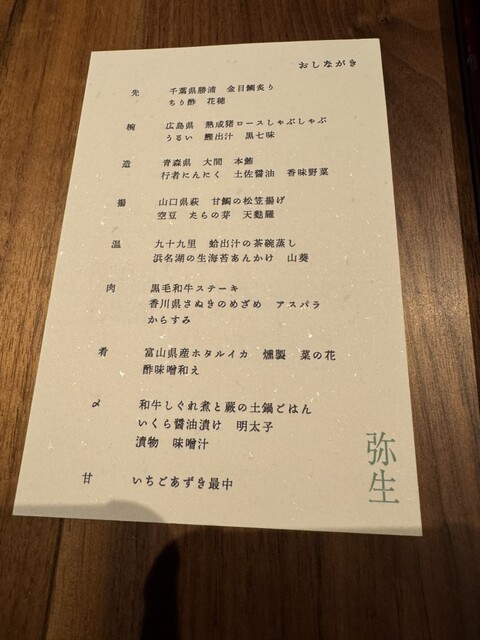 おしながき
先 千葉県勝浦 金目鯛炙り
ちり酢 花穂
椀 広島県 熟成猪ロースしゃぶしゃぶ
うるい 鰹出汁 黒七味
造 青森県 大間 本鮪
行者にんにく 土佐醤油 香味野菜
揚 山口県萩 甘鯛の松笠揚げ
空豆 たらの芽 天麩羅
温 九十九里 蛤出汁の茶碗蒸し
浜名湖の生海苔あんかけ 山葵
肉 黒毛和牛ステーキ
香川県さぬきのめざめ アスパラ
からすみ
肴 富山県産ホタルイカ 燻製 菜の花
酢味噌和え
〆 和牛しぐれ煮と蕨の土鍋ごはん
いくら醤油漬け 明太子
漬物 味噌汁
甘 いちごあずき最中
弥生